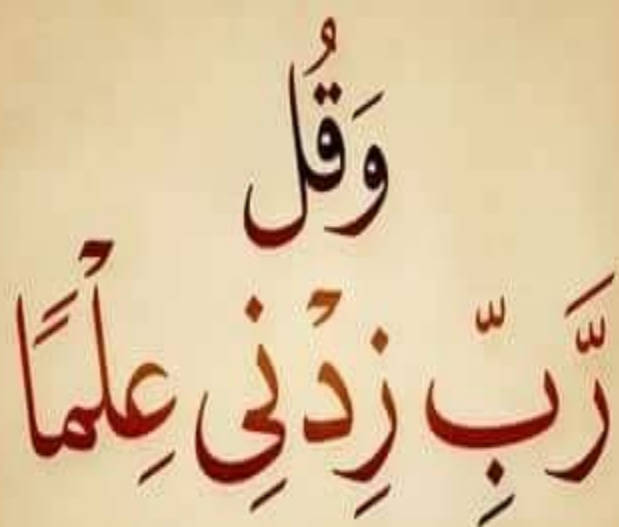 وَقُل
رَّبِّ زِدْنِى عِلْمًا